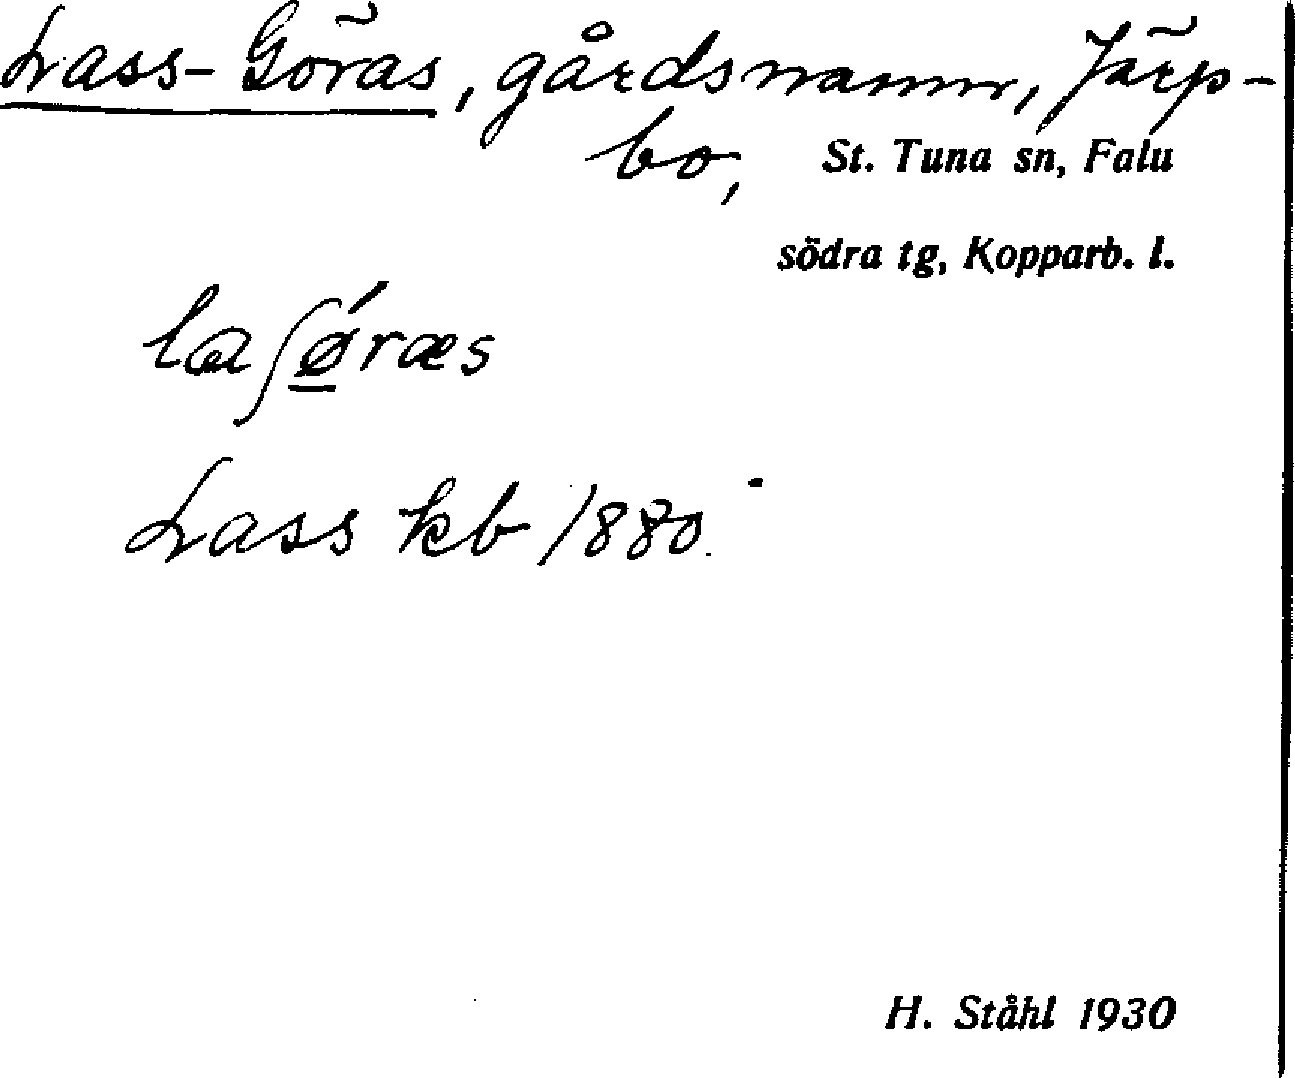 Lass-Göras, gårdsnamn, Järp-
bo, St. Tuna sn, Falu
södra tg, Kopparb. l.
laʃǿ̱ræs
Lass kb 1880.
H. Ståhl 1930